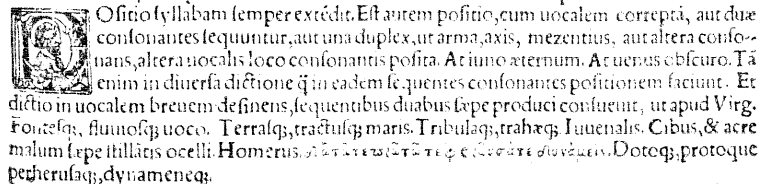 POſitio ſyllabam ſemper extēdit. Eſt autem poſitio, cum uocalem correptā, aut duæ
conſonantes ſequuntur, aut una duplex, ut arma, axis, mezentius, aut altera conſo-
nans, altera uocalis loco conſonantis poſita. At iuno æternum. At uenus obſcuro. Tā
enim in diuerſa dictione q̄ in eadem ſequentes conſonantes poſitionem faciunt. Et
dictio in uocalem breuem deſinens, ſequentibus duabus ſæpe produci conſueuit, ut apud Virg.
Fonteſq;, fluuioſq; uoco. Terraſq;, tractuſq; maris. Tribulaq;, trahæq;. Iuuenalis. Cibus, & acre
malum ſæpe ſtillātis ocelli. Homerus. Dotoq;, protoque
petheruſaq;, dynameneq;.